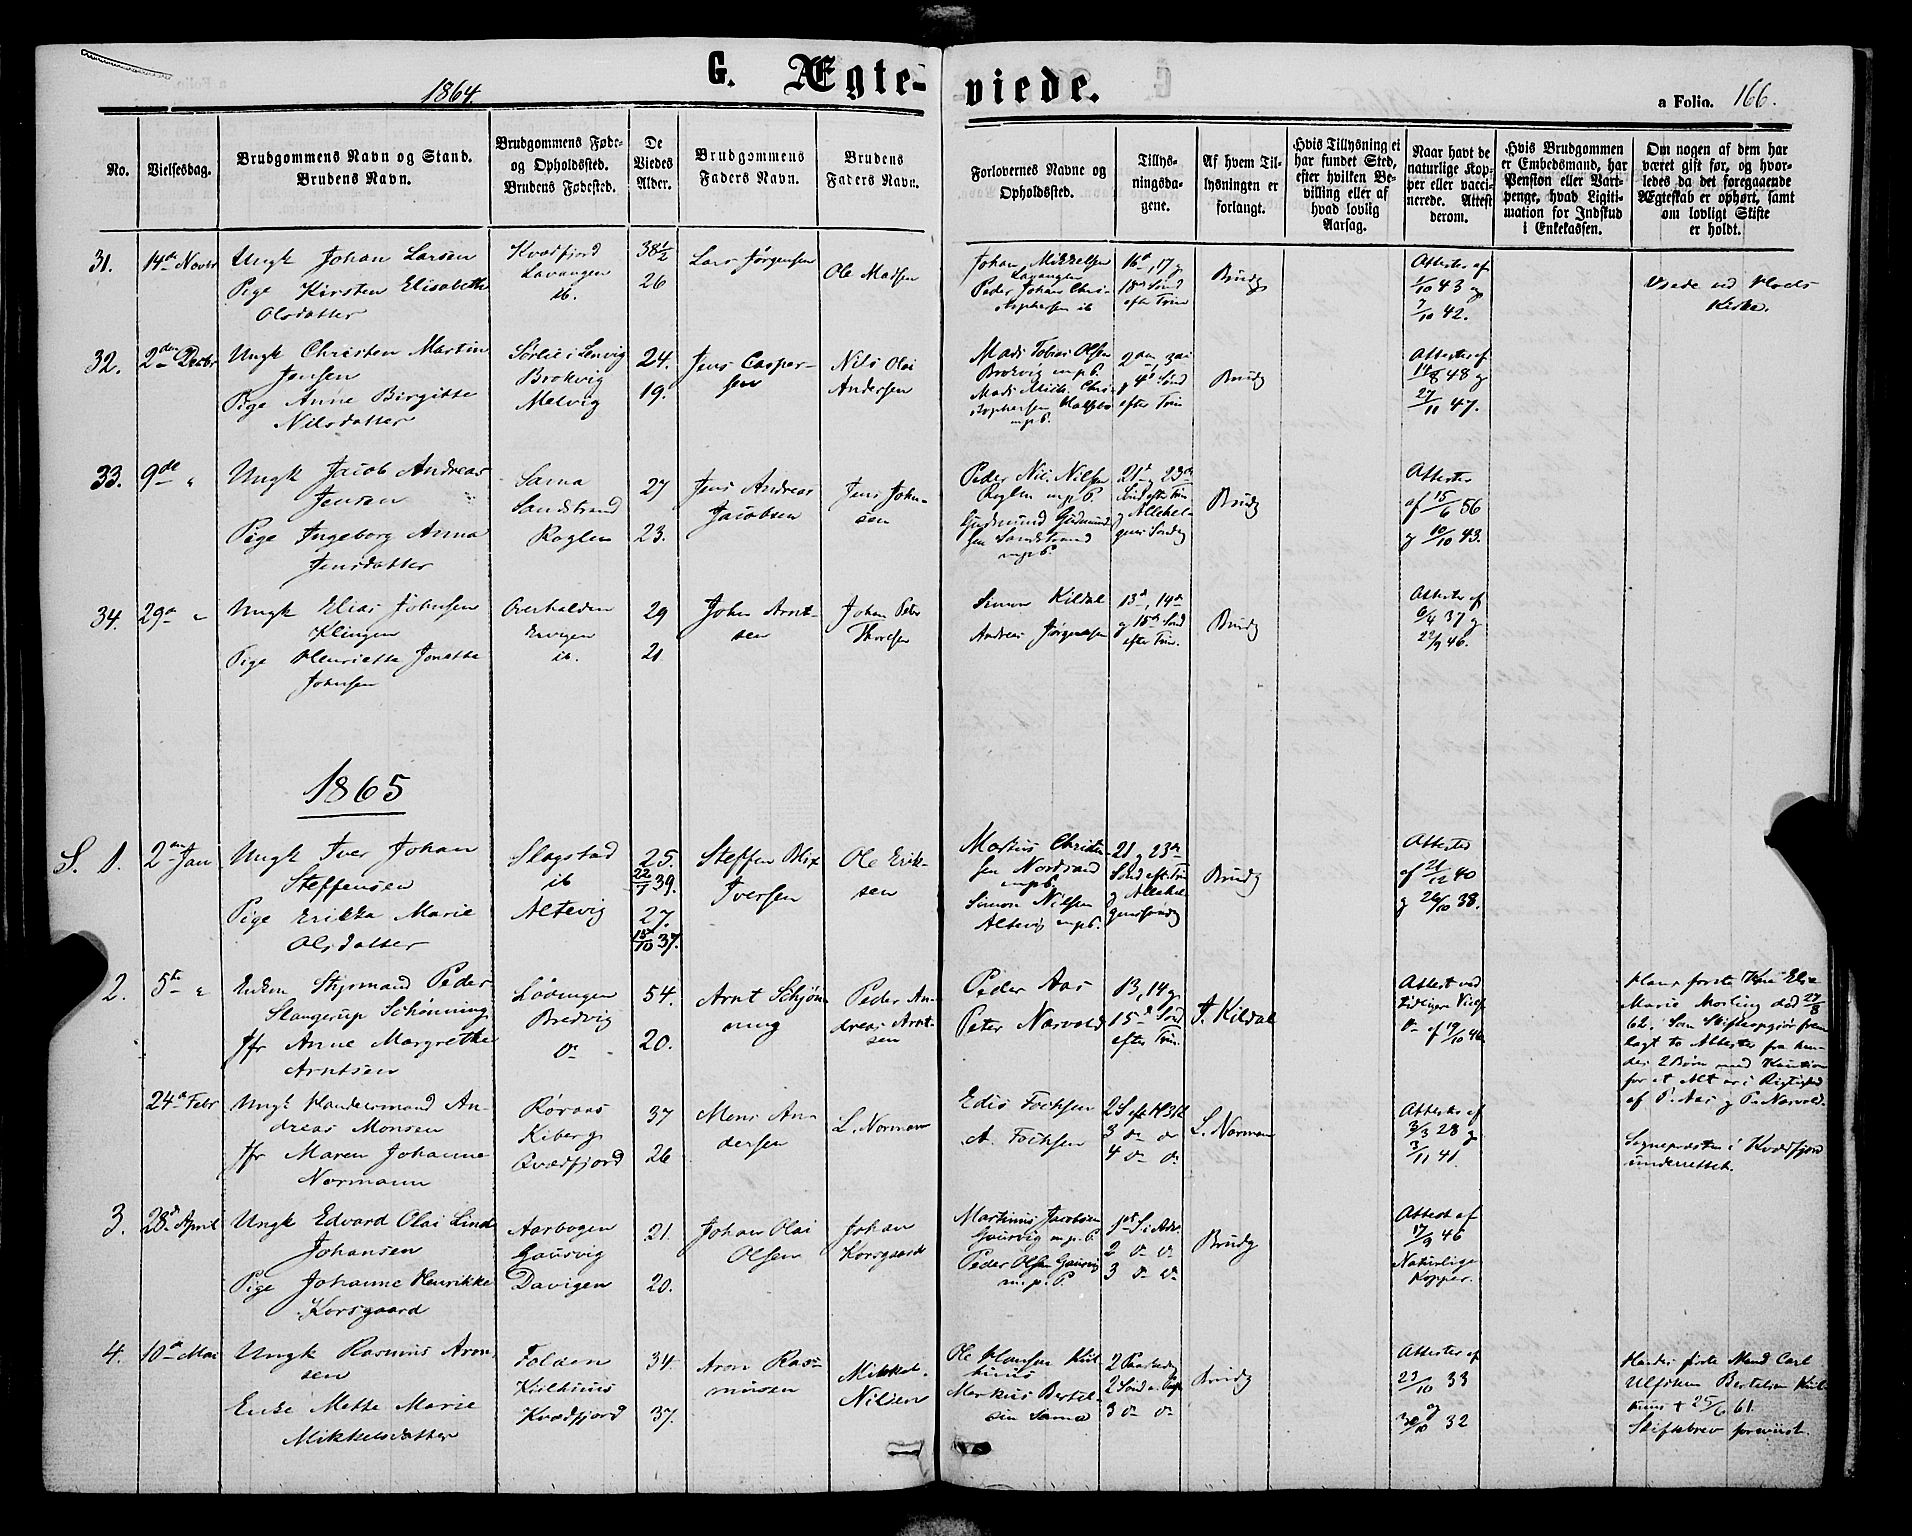 1864.
G. Ægte-
viede.
a Folio. 166.
No.
Vielsesdag.
Brudgommens Navn og Stand.
Brudens Navn.
Brudgommens Føde-
og Opholdssted.
Brudens Fødested.
De
Viedes
Alder.
Brudgommens
Faders Navn.
Brudens
Faders Navn.
Forlovernes Navne og
Opholdssted.
Tillys-
ningsda-
gene.
Af hvem Til-
lysningen er
forlangt.
Hvis Tillysning ei
har fundet Sted,
efter hvilken Be-
villing eller af
hvad lovlig
Aarsag.
Naar havt de
naturlige Kop-
per eller vacci-
nerede. Attest
derom.
Hvis Brudgommen
er Embedsmand, har
Pension eller Vart-
penge, hvad Ligiti-
mation for Indskud
i Enkekassen.
Om nogen af dem har
været gift før, og hvor-
ledes da det foregaaende
Ægteskab er ophørt, samt
om lovligt Skifte
er holdt.
31. 14de Novbr
Ungk Johan Larsen
Pige Kirsten Elisabeth
Olsdatter
Kvædfjord
Lavangen
ib.
38½
26
Lars Jørgensen
Ole Madsen
Johan Mikkelsen
Lavangen
Peder Johan Chri-
stophersen ib
16de, 17 g
18de Sønd
efter Trin
Brudg
Attester af
/10 43 og
7/10 42.
Viede ved
Kirke.
32. 2den Decbr
Ungk Christen Martin
Jensen
Pige Anne Birgitte
Nilsdatter
Sørlie i Lenvig
Brokvig
Melvig
24.
19.
Jens Casper-
sen
Nils Olai
Andersen
Mads Tobias Olsen
Brokvig mpP.
Mads Mich. Chri-
stophersen
mpP.
g 4de Sønd
efter Trin
Brudg
Attester af
48 g
27/11 47.
33. 9de "
Ungk Jacob Andreas
Jensen
Pige Ingeborg Anna
Jensdatter
Sama
Sandstrand
Roglen
27
23.
Jens Andreas
Jacobsen
Jens John-
sen
Peder Nic. Nilsen
Roglen mpP.
Gudmund Gudmund-
sen Sandstrand
mpP.
21de, 23de
Sønd eft Trin
g Allehel-
gens Søndg
Brudg
Attester
af 15/6 56
g 10/10 43.
34. 29de "
Ungk Elias Johnsen
Klingen
Pige Henriette Jonette
Johnsen
Overhalden
Ervigen
ib.
29
21
John Arnt-
sen
Johan Peter
Thoresen
Simon Kildal
Andreas Jørgensen
13de, 14de
g 15de Sønd
efter Trin.
Brudg
Attester af
6/4 37 g
22/9 46.
1865
S. 1. 2den Jan
Ungk Iver Johan
Steffensen
Pige Erikka Marie
Olsdatter
Slagstad
ib
Altevig
25.
22/1 39.
27.
15/10 37.
Steffen Blix
Iversen
Ole Erik-
sen
Martius Christen-
sen Nordsand
mpP.
Simon Nilsen
Altevig mpP.
21 g 23de
Sønd eft. Trin
g Allehel-
gensSøndg
Brudg
Attester
af 21/12 40
g 26/10 38.
2. 5te "
Enkem Styrmand Peder
Slangerup Schønning
Jfr Anne Margrethe
Arntsen
Lødingen
Bredvig
do
54.
20.
Arnt Schjøn-
ning
Peder An-
dreas Arnt-
sen
Peder Aas
Peter Narvold
13, 14 g
15de Sønd
efter Trin.
F. Kildal
Attest ved
tidligere Vielse
do af 19/10 46
Hans første Kone Else
Marie Morling død 27/8
62. Som Skifteopgjør frem-
lagt to Attester fra hen-
des 2 Børn med Kaution
for at Alt er i Rigtighed
af P. Aas g P. Narvold.
24de Febr
Ungk Handelsmand An-
dreas Monsen
Jfr Maren Johanne
Normann
Røraas
Kiberg
Qvædfjord
37
26
Mons An-
dersen
L. Normann
Edis Fochsen
A. Fochsen
2 S eft H3K
3 do do
4 do do
L. Normann
Attester af
3/3 28 g
3/11 41.
Sognepresten i Kvædfjord
underrettet.
3. 28de April
Ungk Edvard Olai Lind
Johansen
Pige Johanne Henrikke
Korsgaard
Aarbogen
Gausvig
Davigen
21.
20.
Johan Olai
Olsen
Johan
Korsgaard
Martinus Jacobsen
Gausvig m.p.P
Peder Olsen Gausvig
m.p.P.
1ste S i Adv.
2 do do
3 do do
Brudg
Attest af
17/9 46
Naturlige
Kopper.
4. 10de Mai
Ungk Rasmus Arnt-
sen
Enke Mette Marie
Mikkelsdatter
Folden
Kulhuus
Kvædfjord
34.
37.
Arnt Ras-
mussen
Mikkel
Nilsen
Ole Hansen Kul-
huus
Markus Bertel-
sen Sama
2 Paaskedg
2 Sønd e. Paas
3 do do
Brudg
Attester af
23/10 33
og
30/10 32
Hendes første Mand Carl
Ulfsken Bertelsen Kul-
huus † 25/6 61.
Skiftebrev foreviist.